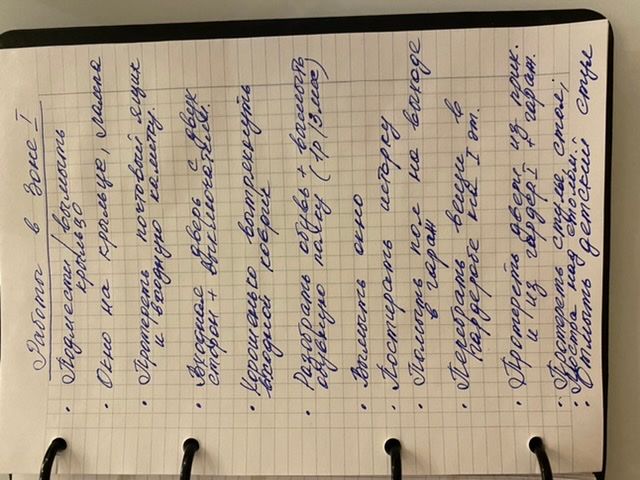 Работы в Зоне I
• Подмести/вымыть
крыльцо
• Окно на крыльце, лампа
• Протереть почтовый ящик
и входную калитку.
• Входная дверь с двух
сторон + выключатели.
• Хорошенько вытряхнуть
входной коврик
• Разобрать обувь + вымыть
обувную полку (1р/3мес)
• Вымыть окно
• Постирать шторку
• Помыть пол на выходе
в гараж
• Перебрать вещи в
гардеробе на I эт.
• Протереть двери из прих.
и из гардер I + гараж.
• Протереть стулья, стол,
• люстра над столом.
• Отмыть детский стул